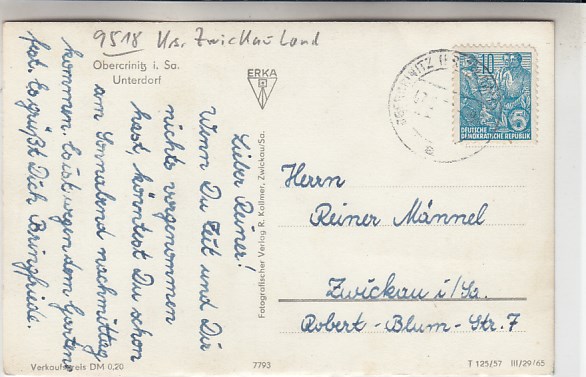 9518 Krs. Zwickau Land
Obercrinitz i. Sa.
Unterdorf
ERKA
Lieber Reiner!
Wenn Du Zeit und Dir
nichts vorgenommen
hast könntest Du schon
am Sonnabend nachmittag
kommen. Es ist wegen dem Garten
fest. Es grüßt Dich Bringfriede.
Fotografischer Verlag R. Kallmer, Zwickau/Sa.
10
5
DEUTSCHE
DEMOKRATISCHE REPUBLIK
Herrn
Reiner Männel
Zwickau i/Sa.
Robert-Blum-Str. 7
Verkaufspreis DM 0,20
7793
T 125/57 III/29/65